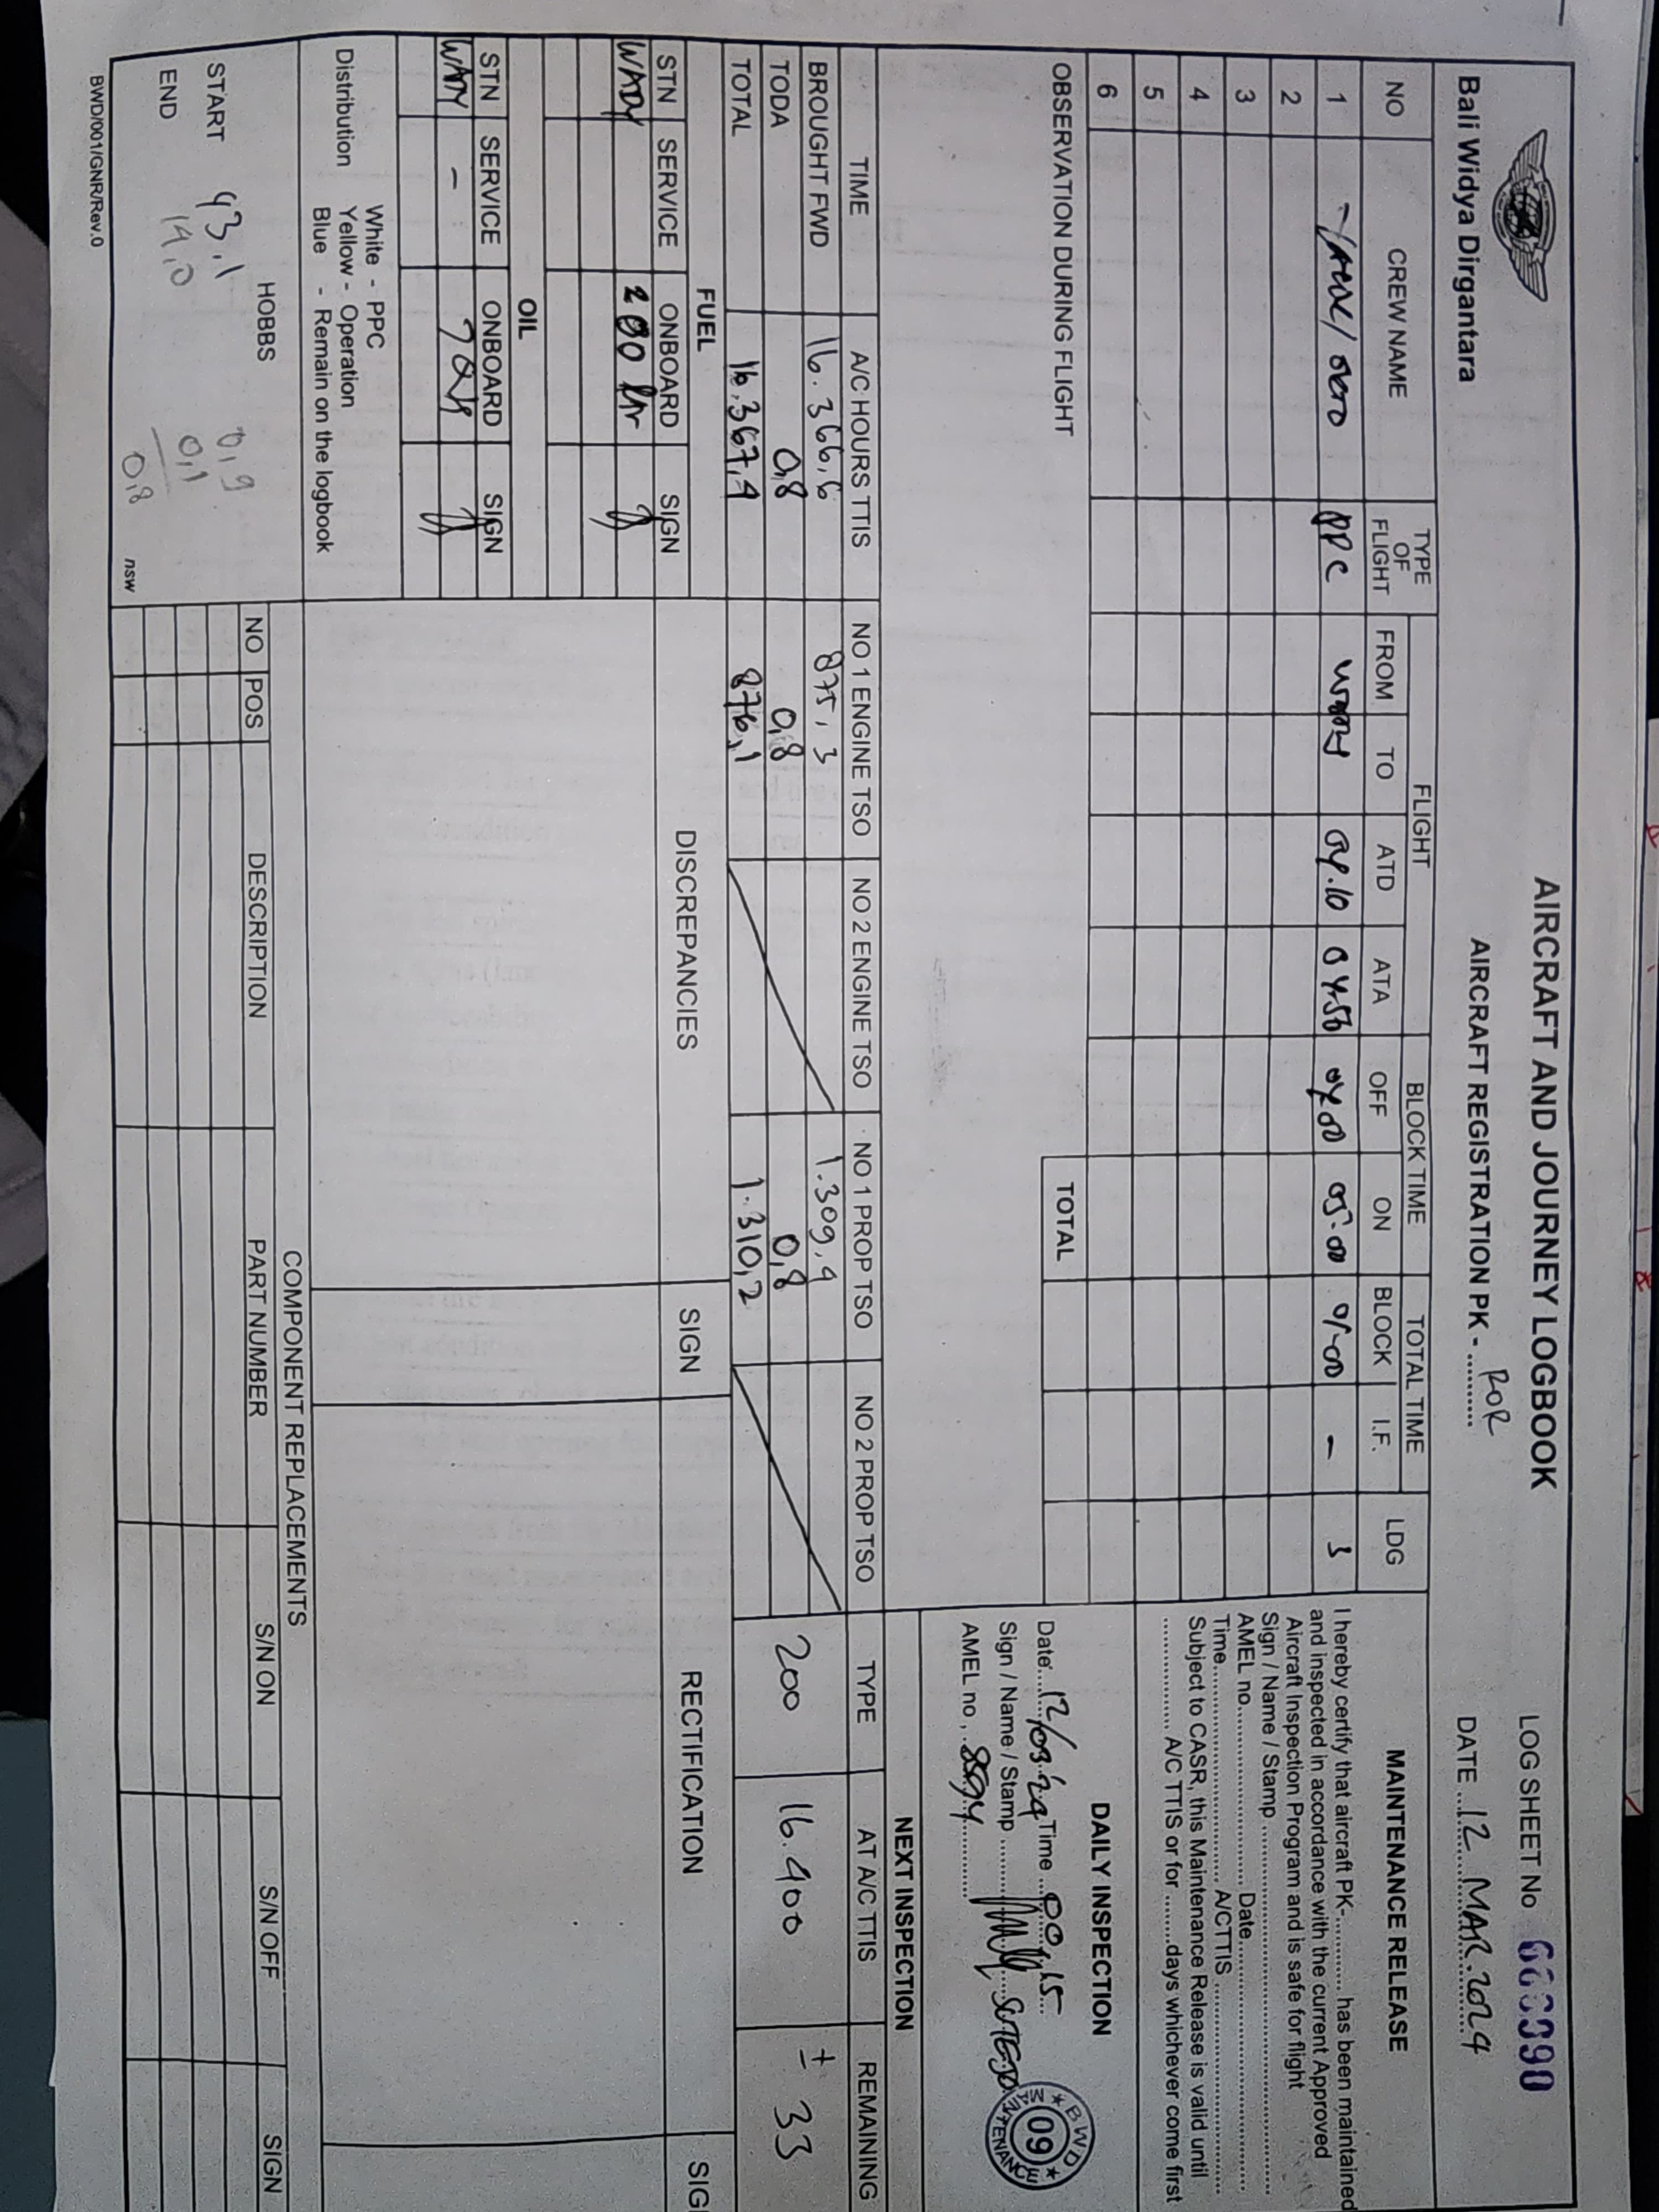 AIRCRAFT AND JOURNEY LOGBOOK
LOG SHEET No 000090
Bali Widya Dirgantara
AIRCRAFT REGISTRATION PK - ROR
DATE 12 MAR. 2024
NO CREW NAME TYPE OF FLIGHT FLIGHT BLOCK TIME TOTAL TIME LDG
FROM TO ATD ATA OFF ON BLOCK I.F.
1 PPC 04.10 05.00 - 3
2
3
4
5
6
TOTAL
OBSERVATION DURING FLIGHT
MAINTENANCE RELEASE
I hereby certify that aircraft PK-............ has been maintained
and inspected in accordance with the current Approved
Aircraft Inspection Program and is safe for flight
Sign / Name / Stamp
AMEL no Date
Time A/CTTIS
Subject to CASR, this Maintenance Release is valid until
A/C TTIS or for ........days whichever come first
DAILY INSPECTION
Date 12/03'24 Time 00.15
Sign / Name / Stamp
AMEL no. 8894
BWD
★ 09 ★
MAINTENANCE
TIME A/C HOURS TTIS NO 1 ENGINE TSO NO 2 ENGINE TSO NO 1 PROP TSO NO 2 PROP TSO
BROUGHT FWD 16.366,6 875,3 1.309,4
TODA 0,8 0,8 0,8
TOTAL 16.367,4 876,1 1.310,2
NEXT INSPECTION
TYPE AT A/C TTIS REMAINING
200 16.400 ± 33
FUEL
STN SERVICE ONBOARD SIGN
200 ltr
OIL
STN SERVICE ONBOARD SIGN
- 7 Qt
DISCREPANCIES SIGN RECTIFICATION SIG
Distribution White - PPC
Yellow - Operation
Blue - Remain on the logbook
HOBBS
START 43,1
END 14,0
0,9
0,1
0,8
nsw
COMPONENT REPLACEMENTS
NO POS DESCRIPTION PART NUMBER S/N ON S/N OFF SIGN
BWD/001/GNR/Rev.0